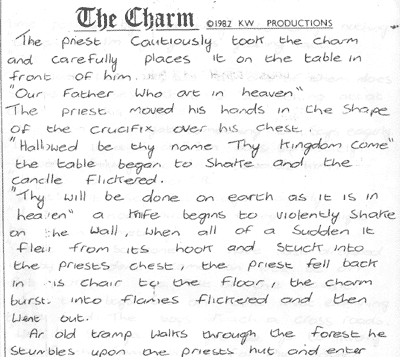 The Charm ©1982 KW PRODUCTIONS
The priest Cautiously took the charm
and carefully places it on the table in
front of him.
"Our Father Who art in heaven"
The priest moved his hands in the shape
of the crucifix over his chest.
"Hallowed be thy name Thy Kingdom come"
the table began to Shake and the
candle Flickered.
"Thy will be done on earth as it is in
heaven" a Knife begins to violently Shake
on the Wall, when all of a Sudden it
flew from its hook and Stuck into
the priests chest, the priest fell back
in is Chair to the Floor, the charm
burst into flames flickered and then
Went out.
An old tramp Walks through the forest he
Stumbles upon the priests hut and enter